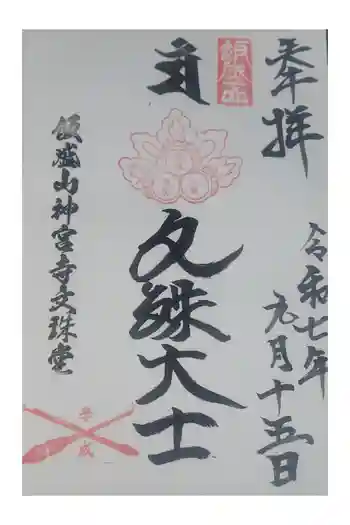 奉拝
令和七年
九月十五日
飯盛山
文殊大士
飯盛山神宮寺文殊堂